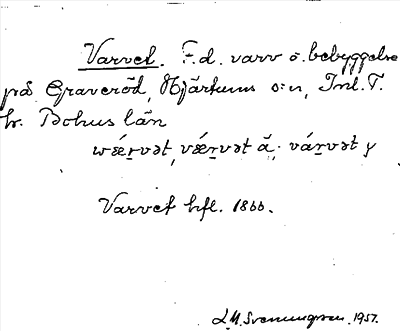 Varvet. F.d. varv o. bebyggelse
på Graveröd, Hjärtums s:n, Inl. T.
hr. Bohus län
wǽrvət, vǽrvət ä; várvət y
Varvet hfl. 1866.
L.M. Svenungsson 1957.